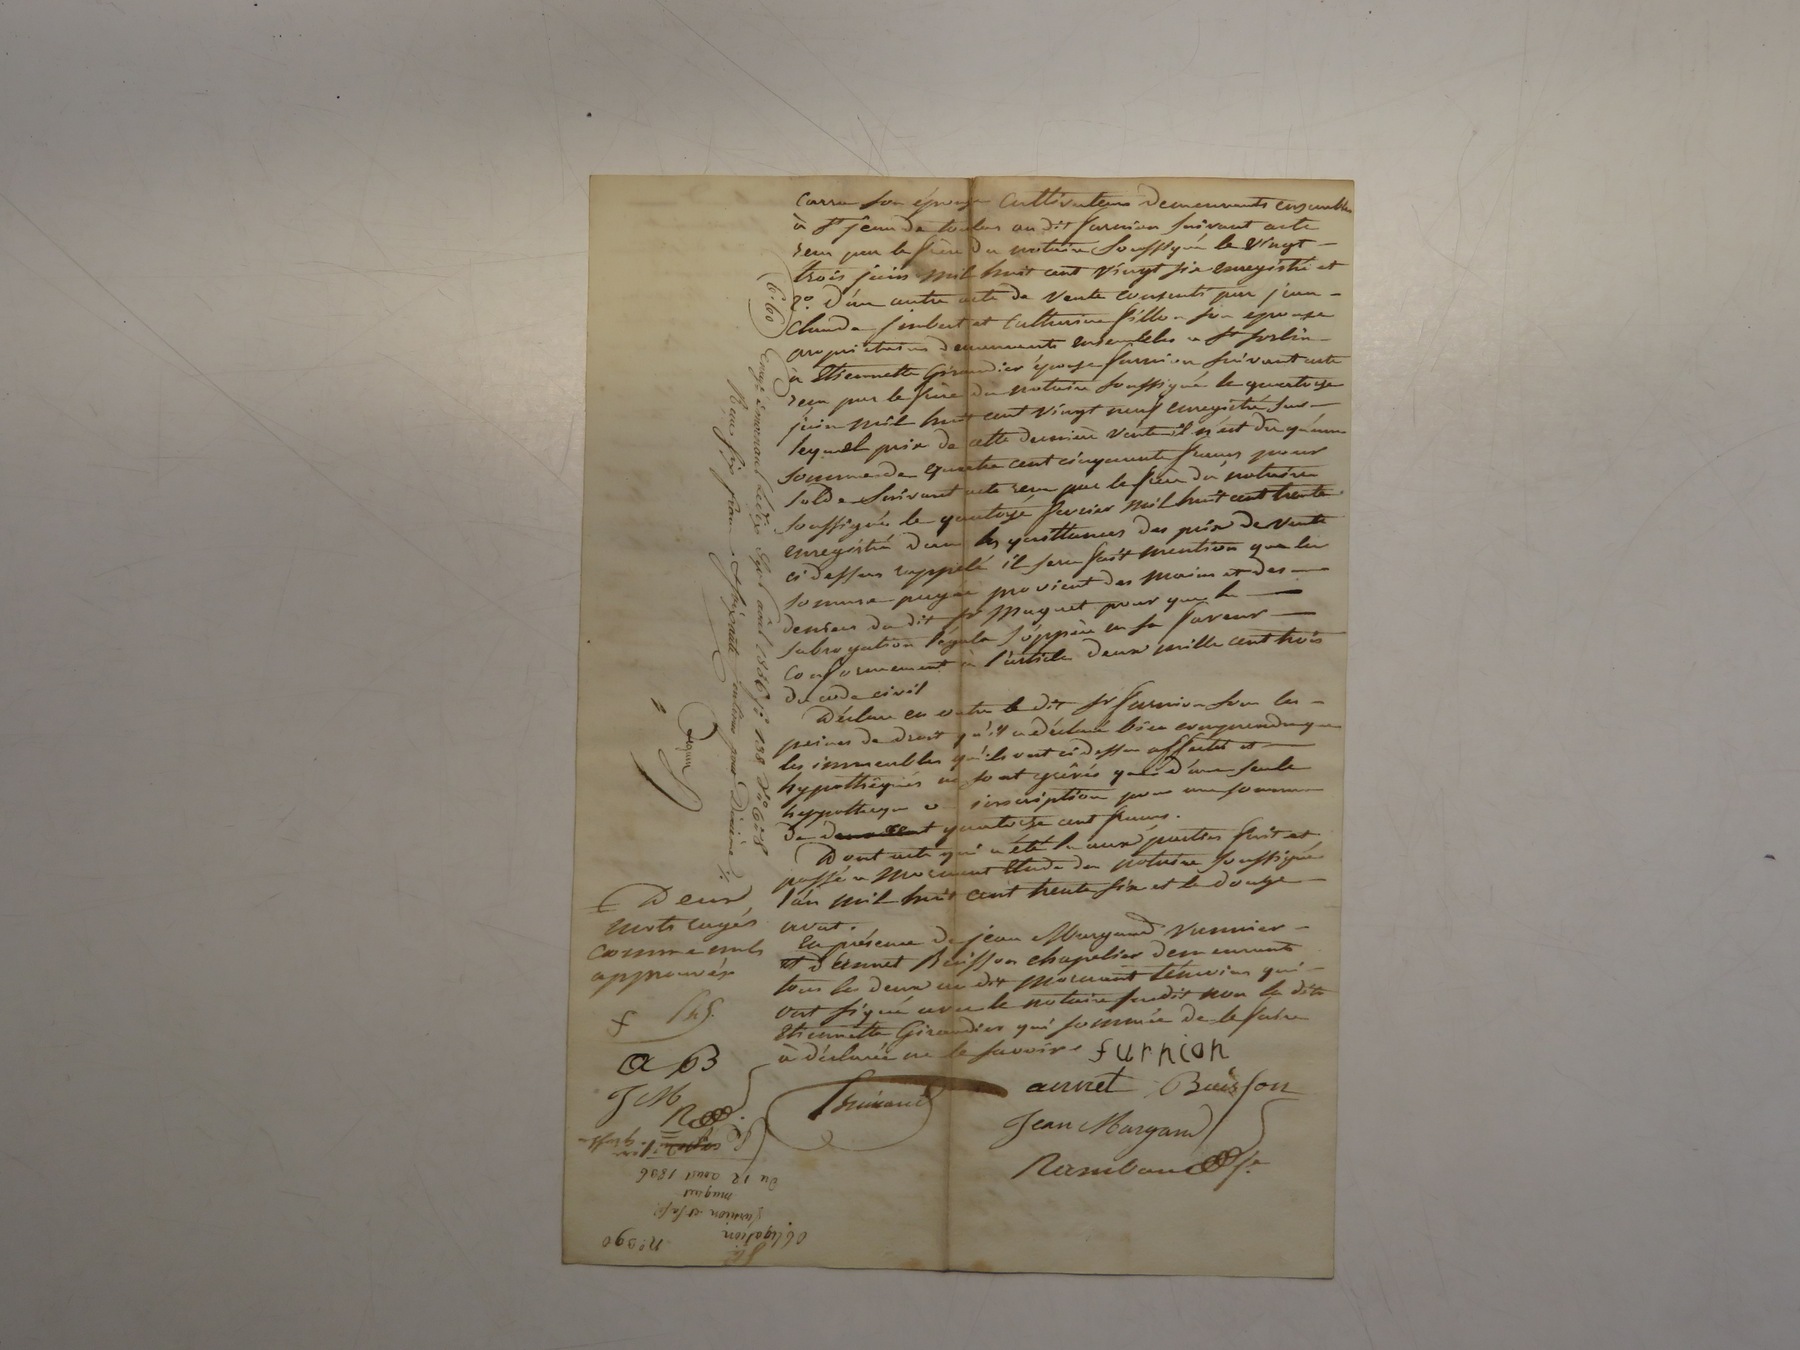 carra son épouse cultivateurs demeurants ensembles
à St jean de toulas au dit furnion suivant acte
recu par le frère du notaire soussigné le vingt
trois juin mil huit cent vingt six enregistré et
2° d'un autre acte de vente consenti par jean
claude jimbert et catherine fillon son épouse
propriétaires demeurants ensembles a St sorlin
à Etiennette Giraudier épouse furnion suivant acte
recu par le frère du notaire soussigné le quatorze
juin mil huit cent vingt neuf enregistré sur
lequel prix de cette dernière vente il n'est du qu'une
somme de quatre cent cinquante francs pour
solde suivant acte recu par le frère du notaire
soussigné le quatorze fevrier mil huit cent trente
enregistré dans les quittances des prix de vente
ci dessus rappelé il sera fait mention que la
somme payée provient des mains et des
deniers du dit sr maguet pour que la
subrogation légale s'oppère en sa faveur
conformement à l'article deux mille cent trois
du code civil
Déclare en outre le dit sr furnion sou les
peines de droit qu'il a déclaré bien comprendre que
les immeubles qu'ils ont ci dessu affectés et
hypothéqués ne sont grêvés que d'une seule
hypotheque ou inscription pour une somme
de quatorze cent francs.
Dont acte qui a été lu aux parties fait et
passé a Mornant Etude du notaire soussigné
l'an mil huit cent trente six et le douze
avat.
En présence de jean Margand vannier
et d'annet Buisson chapelier demeurants
tous les deux au dit Mornant témoins qui
ont signé avec le notaire susdit non la dite
Etiennette Giraudier qui sommée de le faire
à déclarée ne le savoir. furnion
annet Buisson
Jean Margand
Rambaud
Deux
mots rayés
comme nuls
approuvés
f
a B
J M
(660) Enreg. à mornant le dix sept août 1836 f° 188
Recu six francs soixante centimes pour Dixième
n° 990
Obligation
furnion et sa fe
maguet
Du 12 août 1836